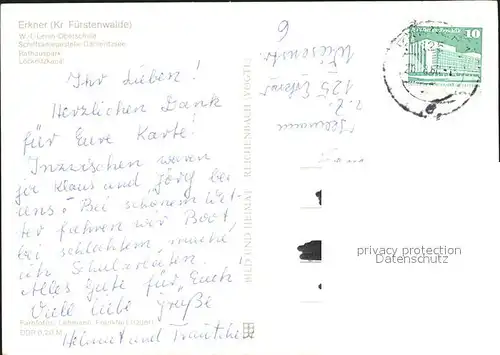 Erkner (Kr. Fürstenwalde)
W.-I.-Lenin-Oberschule
Rathauspark
Löcknitzkanal
Ihr Lieben!
Herzlichen Dank
für Eure Karte!
Inzwischen waren
ja Klaus und Jörg bei
uns. Bei schönem Wet-
ter fahren wir Boot,
bei schlechtem, mache
ich Schularbeiten.
Alles Gute für Euch
Viele liebe Grüße
Helmut und
Farbfotos: Lehmann, Frankfurt (Oder)
DDR 0,20 M
BILD UND HEIMAT REICHENBACH (VOGTL)
6
125 Erkner
10
privacy protection
Datenschutz